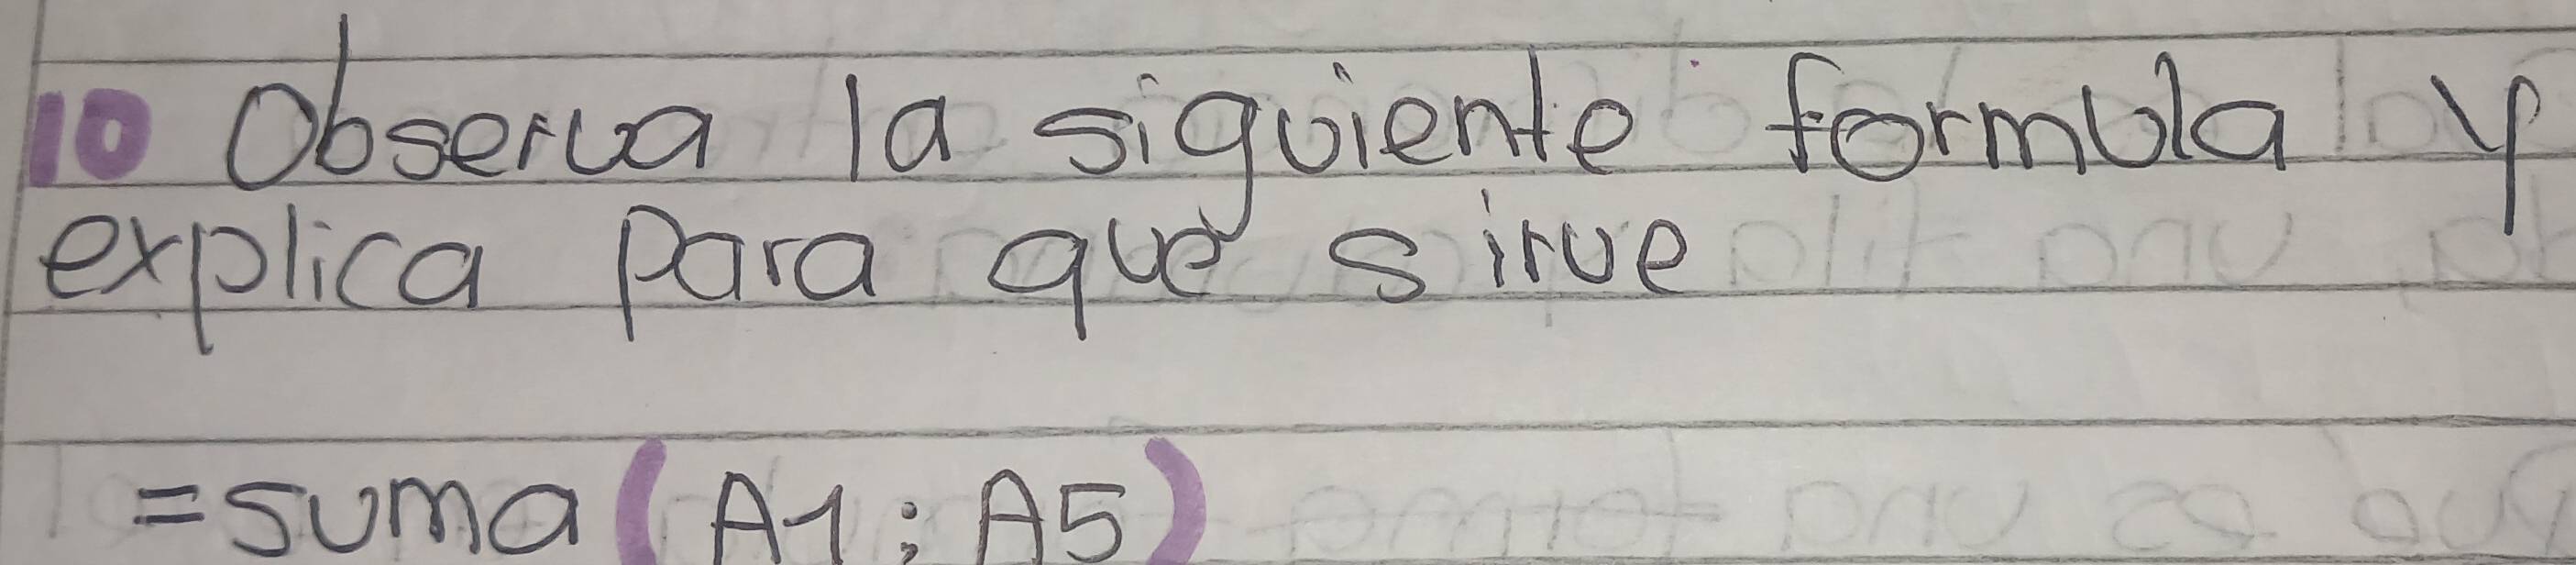 10 Observa la siguiente formula y
explica para que sirve
=suma (A1; A5)